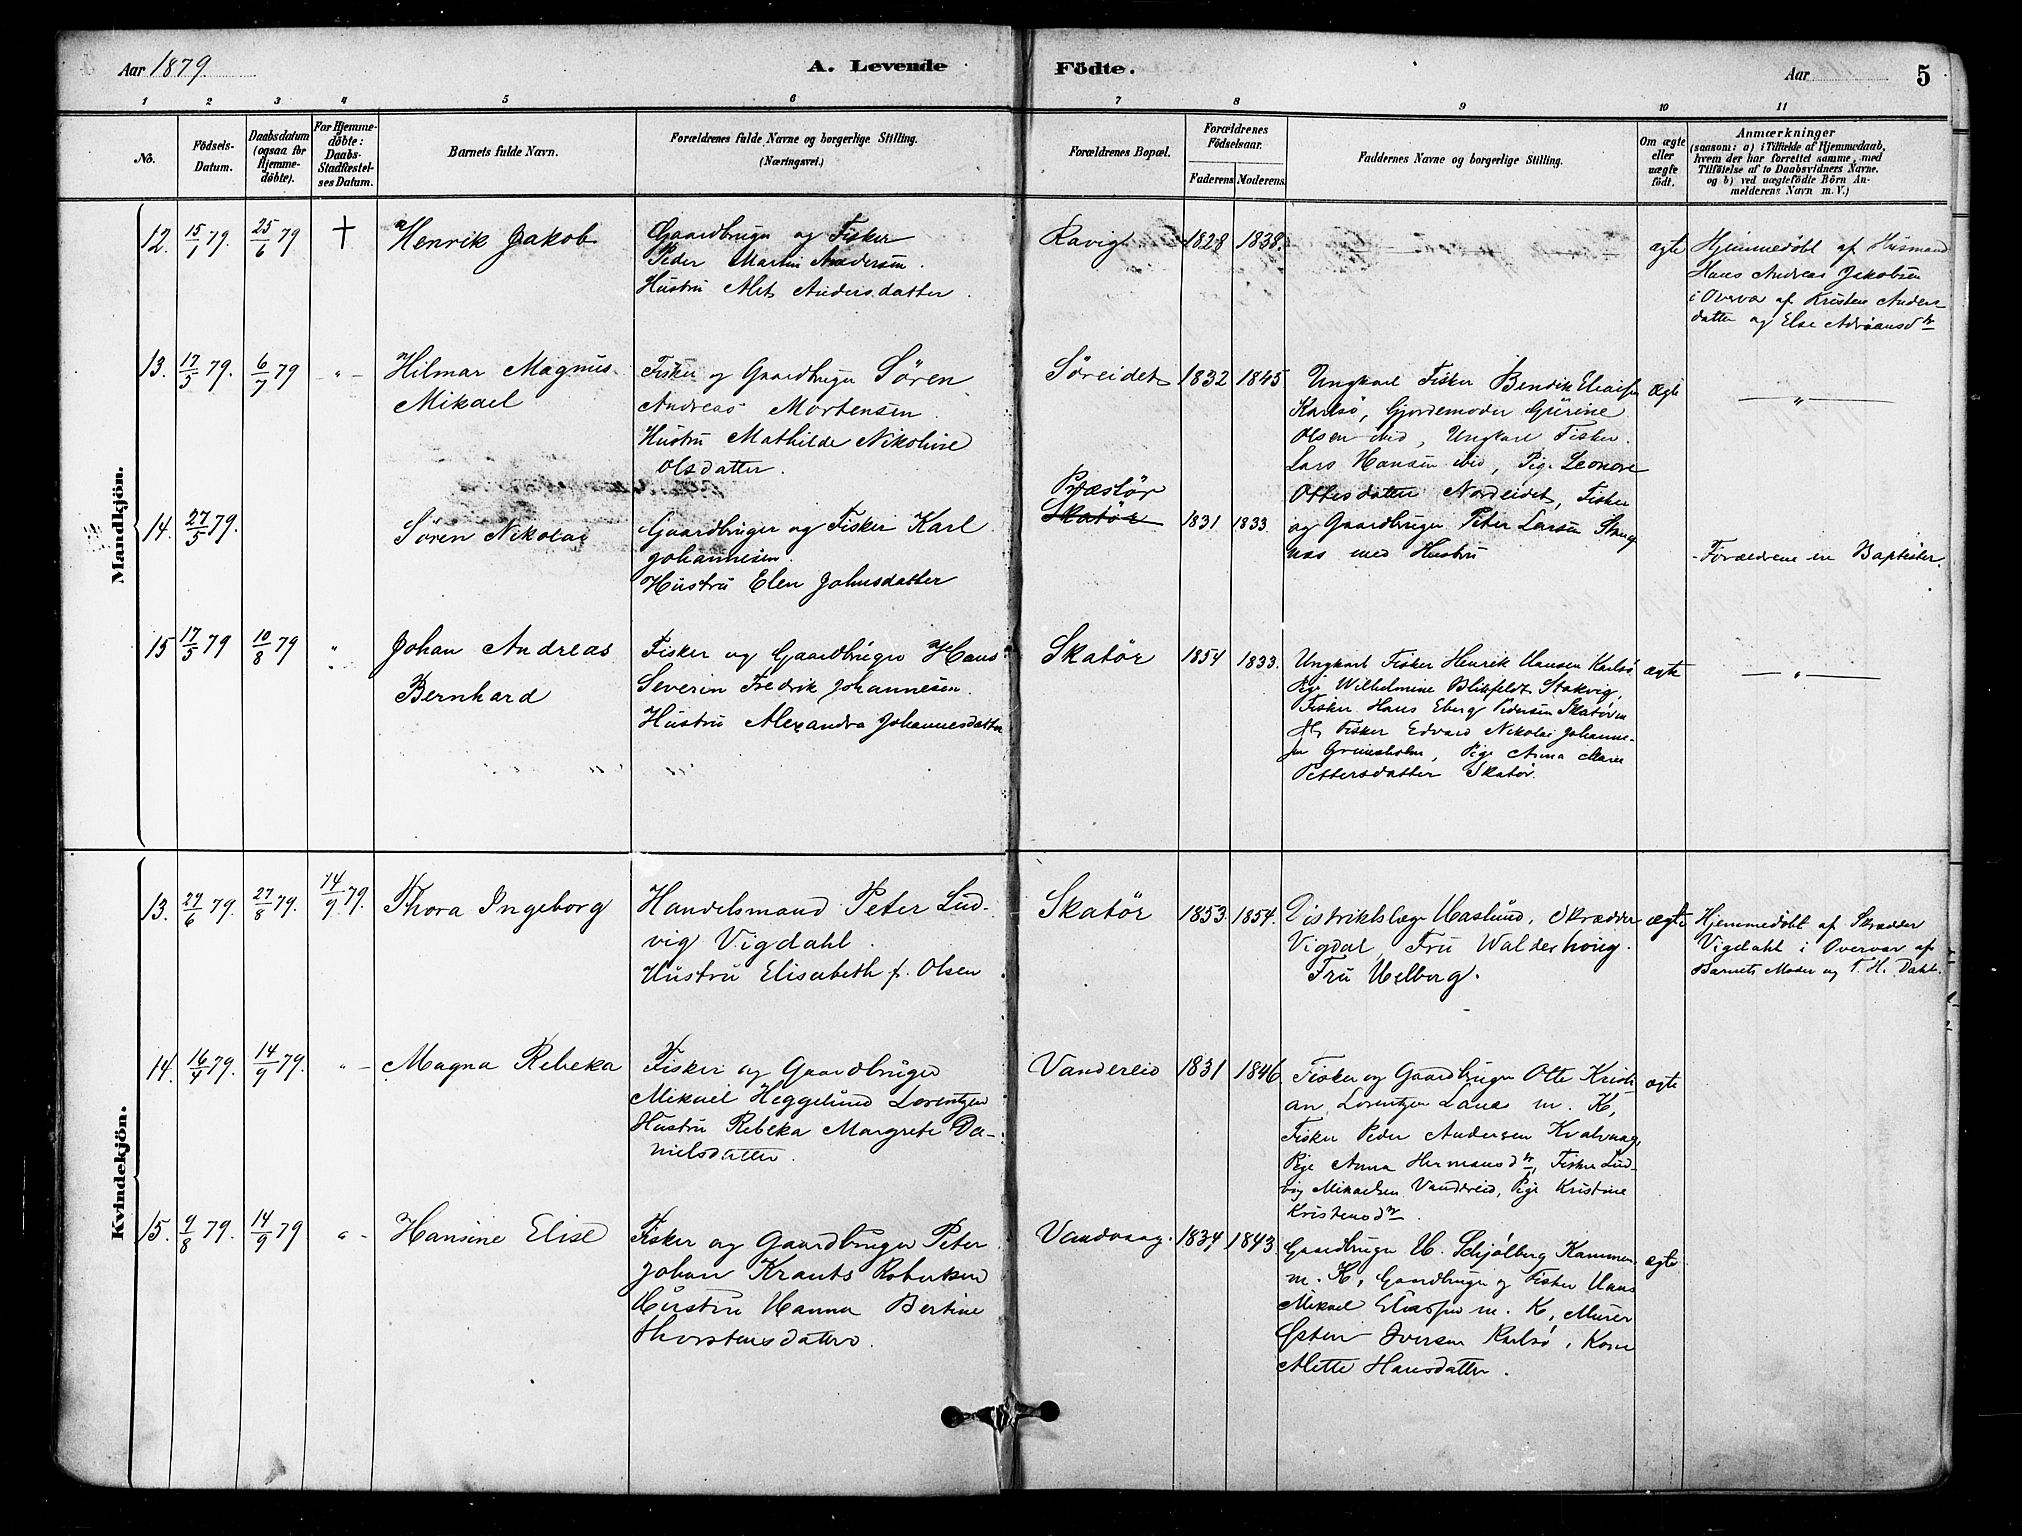 Aar 1879.
A. Levende
Födte.
Aar
5
1 2 3 4 5 6 7 8 9 10 11
No.
Födsels-
Datum.
Daabsdatum
(ogsaa for
Hjemme-
döbte).
For Hjemme-
döbte:
Daabs-
Stadfæstel-
ses Datum.
Barnets fulde Navn.
Forældrenes fulde Navne og borgerlige Stilling.
(Næringsvei.)
Forældrenes Bopæl.
Forældrenes
Födselsaar.
Faderens
Moderens.
Faddernes Navne og borgerlige Stilling.
Om ægte
eller
uægte
födt.
Anmærkninger
(saasom: a) i Tilfælde af Hjemmedaab,
hvem der har forrettet samme, med
Tilföielse af to Daabsvidners Navne.
og b) ved uægtefödte Börn An-
melderens Navn m. V.)
Mandkjön.
12. 15/1 79. 25/6 79 †
Henrik Jakob
Gaardbruger og Fisker
Peder Martin Andersen.
Hustru Alet Andersdatter.
Ravig 1828 1838.
ægte
Hjemmedøbt af Husmand
Hans Andreas Jakobsen
i Overvær af Kristen Anders-
datter og Else Adriansd tr
13. 17/5 79. 6/7 79 - " -
Hilmar Magnus
Mikael
Fisker og Gaardbruger Søren
Andreas Mortensen.
Hustru Mathilde Nikoline
Olsdatter.
Søreidet 1832 1845
Ungkarl Fisker Bendik Eliassen
Karlsø, Gjordemoder Gurine
Olsen ibid, Ungkarl Fisker
Lars Hansen ibid, Pige Leonore
Ottesdatter Nordeidet, Fisker
og Gaardbruger Peter Larsen Stang-
næs med Hustru
ægte
— " —
14. 27/5 79.
Søren Nikolai
Gaardbruger og Fisker Karl
Johannesen.
Hustru Elen Johnsdatter
Præstør
Skatør 1831 1833.
- Forældrene ere Baptister.
15 17/5 79 10/8 79 "
Johan Andreas
Bernhard
Fisker og Gaardbruger Hans
Severin Fredrik Johannesen.
Hustru Alexandra Johannesdatter
Skatør 1854 1833.
Ungkarl Fisker Henrik Hansen Karlsø
Pige Wilhelmine Blixfeldt Stakvig,
Fisker Hans Eberg Pedersen Skatør m
H, Fisker Edvard Nikolai Johanne-
sen Grunesholm, Pige Anna Marie
Pettersdatter Skatør.
ægte
— " —
Kvindekjön.
13. 24/6 79. 27/8 79. 14/9 79.
Thora Ingeborg
Handelsmand Peter Lud-
vig Vigdahl.
Hustru Elisabeth f. Olsen
Skatør 1853. 1854.
Distriktslæge Haslund, Skrædder
Vigdal, Fru Walderhoug.
Fru Helberg.
ægte
Hjemmedøbt af Skrædder
Vigdahl i Overvær af
Barnets Moder og T. H. Dahl.
14. 16/4 79. 14/9 79. " -
Magna Rebeka
Fisker og Gaardbruger
Mikael Heggelund Lorentzen
Hustru Rebeka Margrete Da-
nielsdatter.
Vandereid 1831 1846.
Fisker og Gaardbruger Otte Kristi-
an Lorentzen Lanes m. K,
Fisker Peder Andersen Kvalvaag,
Pige Anna Hermansd tr, Fisker Lud-
vig Mikaelsen Vandereid, Pige Kristine
Kristensd tr.
ægte
15. 9/8 79. 14/9 79 " -
Hansine Elise
Fisker og Gaardbruger Peter
Johan Krants Robertsen
Hustru Hanna Bertine
Thorstensdatter.
Vandvaag. 1834 1843.
Gaardbruger H. Schjølberg Kammen
m. K, Gaardbruger og Fisker Hans
Mikael Eliassen m. K, Murer
Østen Iversen Karlsø, Kone
Alette Hansdatter.
ægte